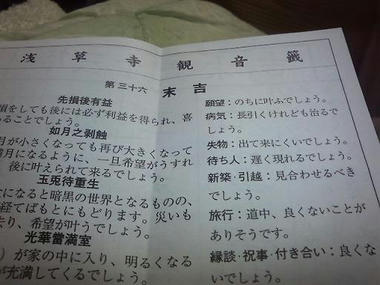 浅草寺観音籤
第三十六
末吉
先損後有益
損をしても後には必ず利益を得られ、喜
ることでしょう。
如月之剥蝕
月が小さくなっても再び大きくなって
満月になるように、一旦希望がうすれ
後に叶えられて来るでしょう。
玉兎待重生
なると暗黒の世界となるものの、
経てばもとにもどります。災いも
り、希望が叶うでしょう。
光華當満室
）が家の中に入り、明るくなる
が充満してくるでしょう。
願望：のちに叶ふでしょう。
病気：長引くけれども治るで
しょう。
失物：出て来にくいでしょう。
待ち人：遅く現れるでしょう。
新築・引越：見合わせるべき
でしょう。
旅行：道中、良くないことが
ありそうです。
縁談・祝事・付き合い：良くな
いでしょう。